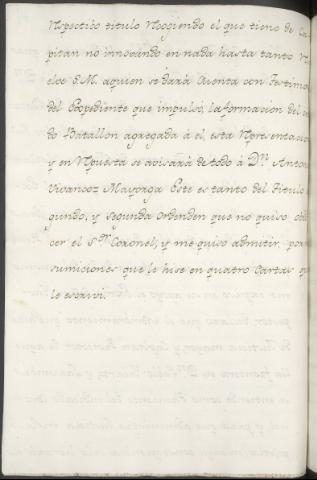 Respectibo titulo Recogiendo el que tiene de Ca
pitan no innobando en nada hasta tanto R
elbe S.M. aquien se dará Cuenta con Testimo
del Expediente que impulsó, la formacion del
do Batallon agregada á él, esta Representacion
y en Respuesta se avisará de todo á Dn. Anton
Mayorga Este es tanto del Titulo
gundo, y segunda Orden en que no quiso obe
cer el Sr. Coronel, y me quiso admitir, por
sumiciones que le hise en quatro Cartas q
le escrivi.